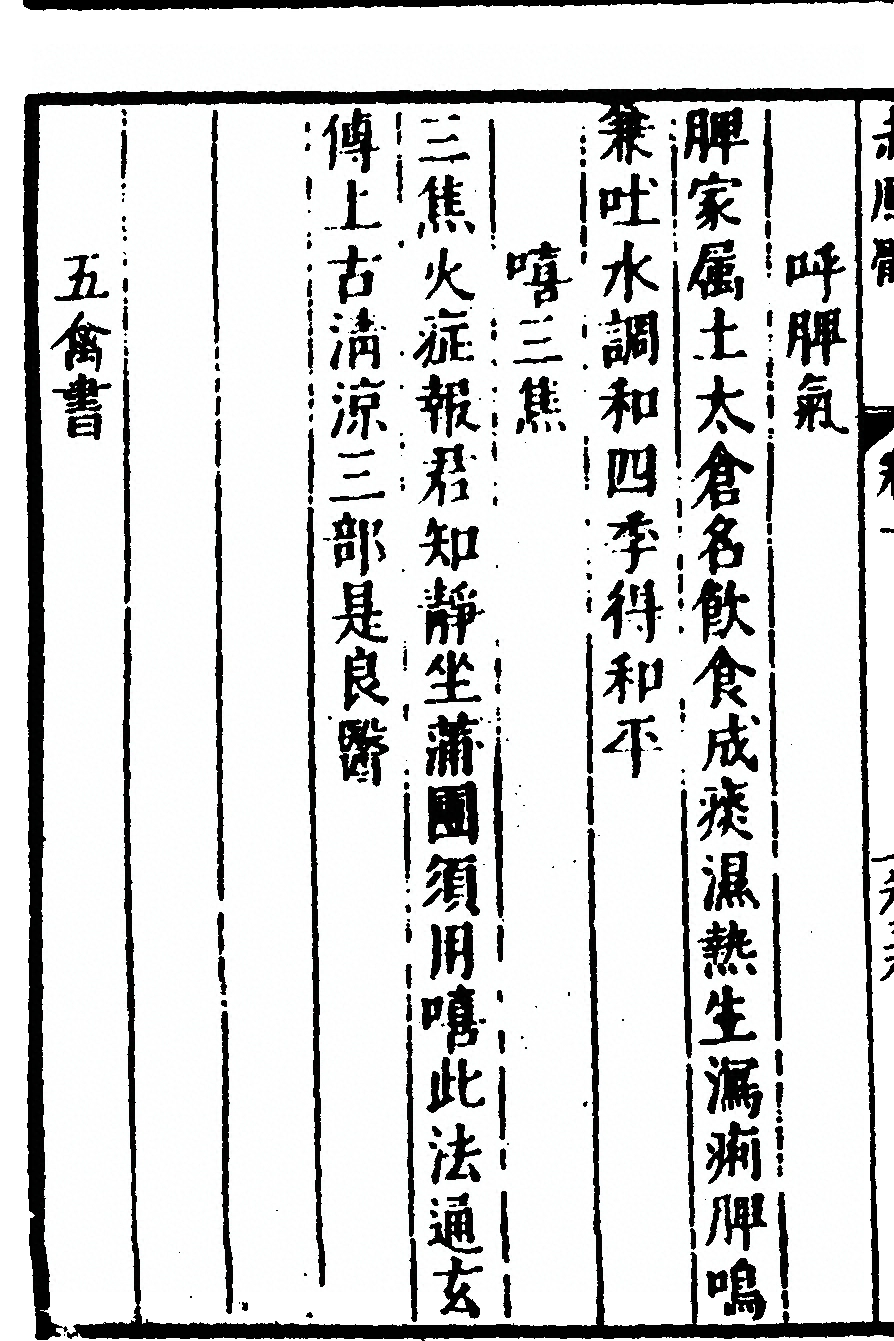 呼脾氣
脾家属土太倉名飲食成痰濕熱生瀉痢脾鳴
兼吐水調和四季得和平
嘻三焦
三焦火症報君知靜坐蒲團須用嘻此法通玄
傳上古淸涼三部是良醫
五禽書